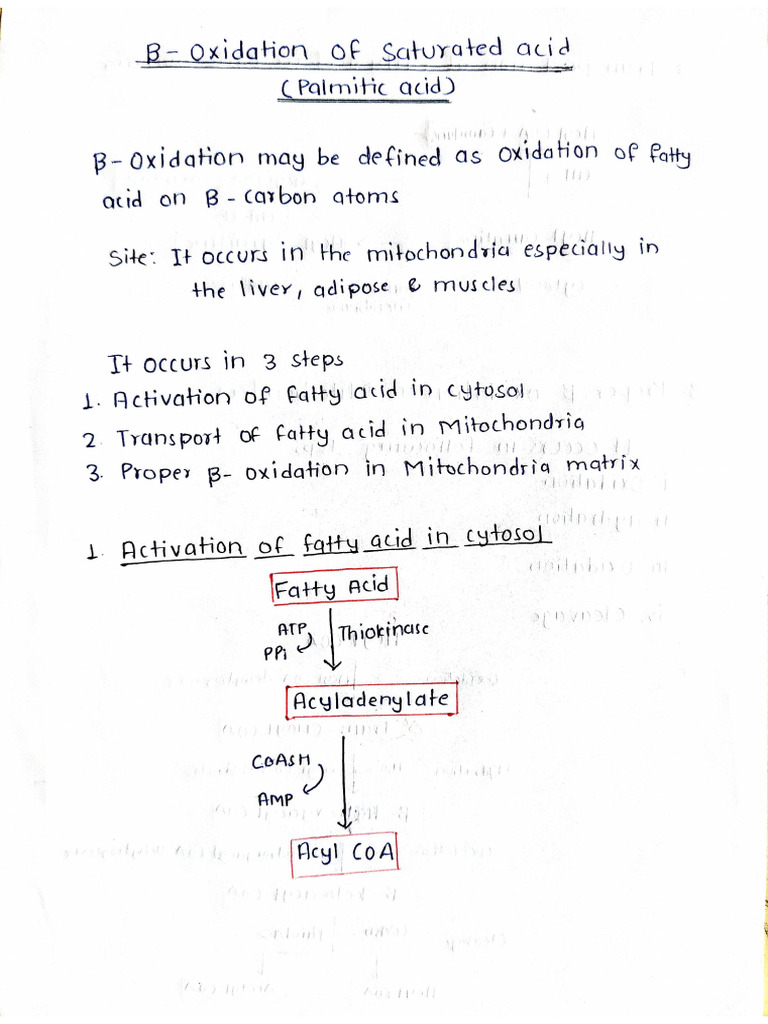 B - Oxidation of Saturated acid
(Palmitic acid)
β - Oxidation may be defined as oxidation of fatty
acid on B - carbon atoms
Site: It occurs in the mitochondria especially in
the liver, adipose & muscles
It occurs in 3 steps
1. Activation of fatty acid in cytosol
2. Transport of fatty acid in Mitochondria
3. Proper β - oxidation in Mitochondria matrix
1. Activation of fatty acid in cytosol
Fatty Acid
ATP
Thiokinase
PPi
Acyladenylate
COASH
AMP
Acyl COA